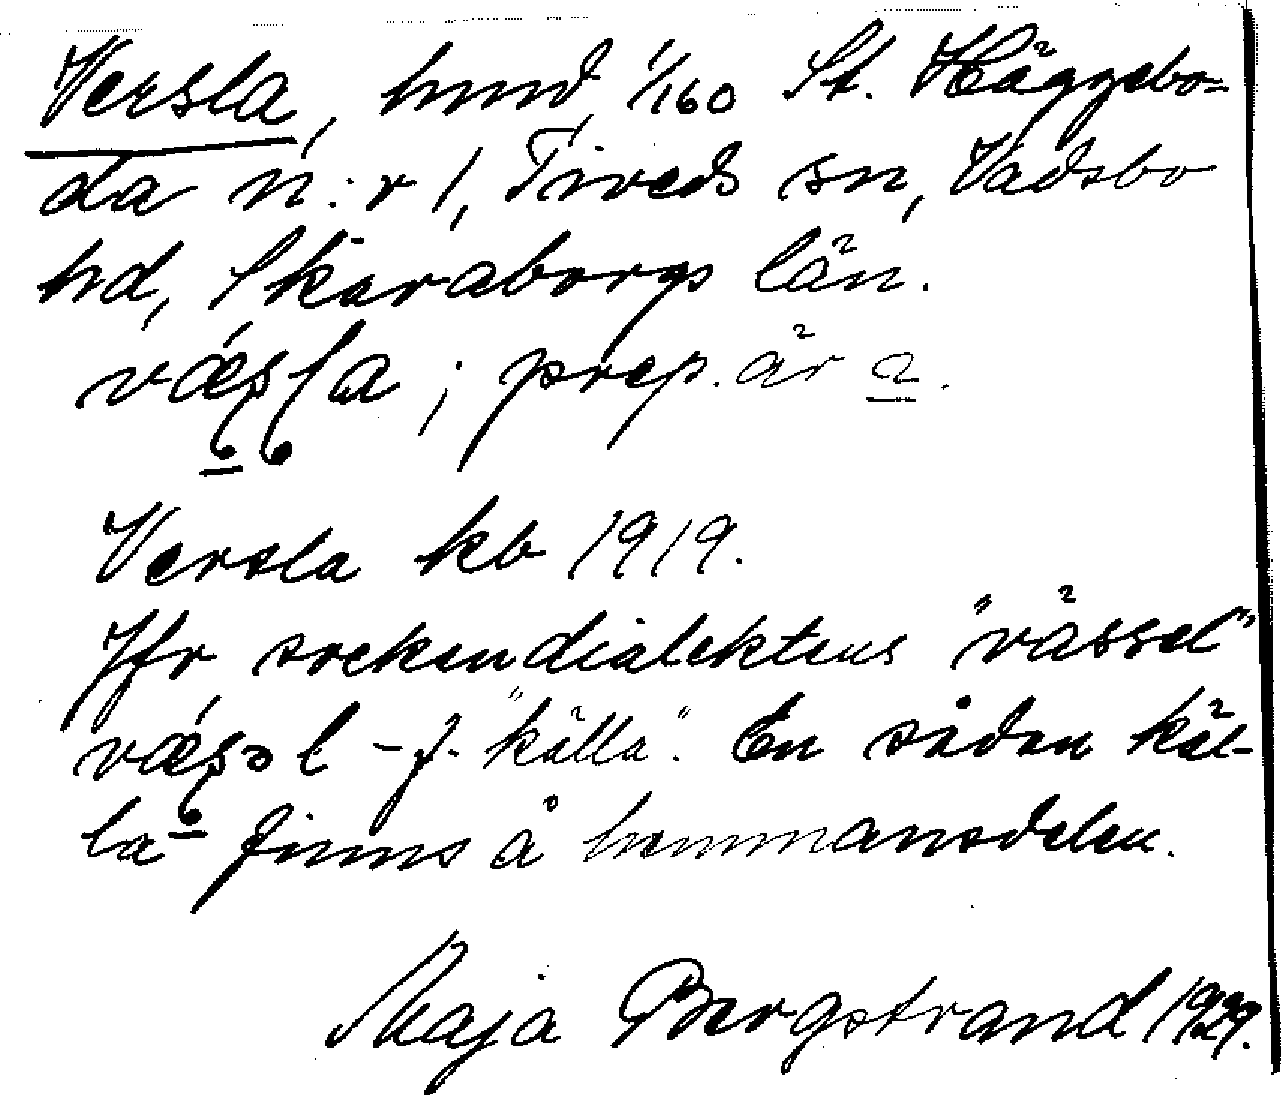 Versla, hmd, 1/160 St. Häggebo-
da n:r 1, Tiveds sn, Vadsbo
hd, Skaraborgs län.
; prep. är a.
Versla kb 1919.
Jfr sockendialektens "vässel"
- f. "källa". En sådan käl-
la finns å hemmansdelen.
Maja Bergstrand 1929.